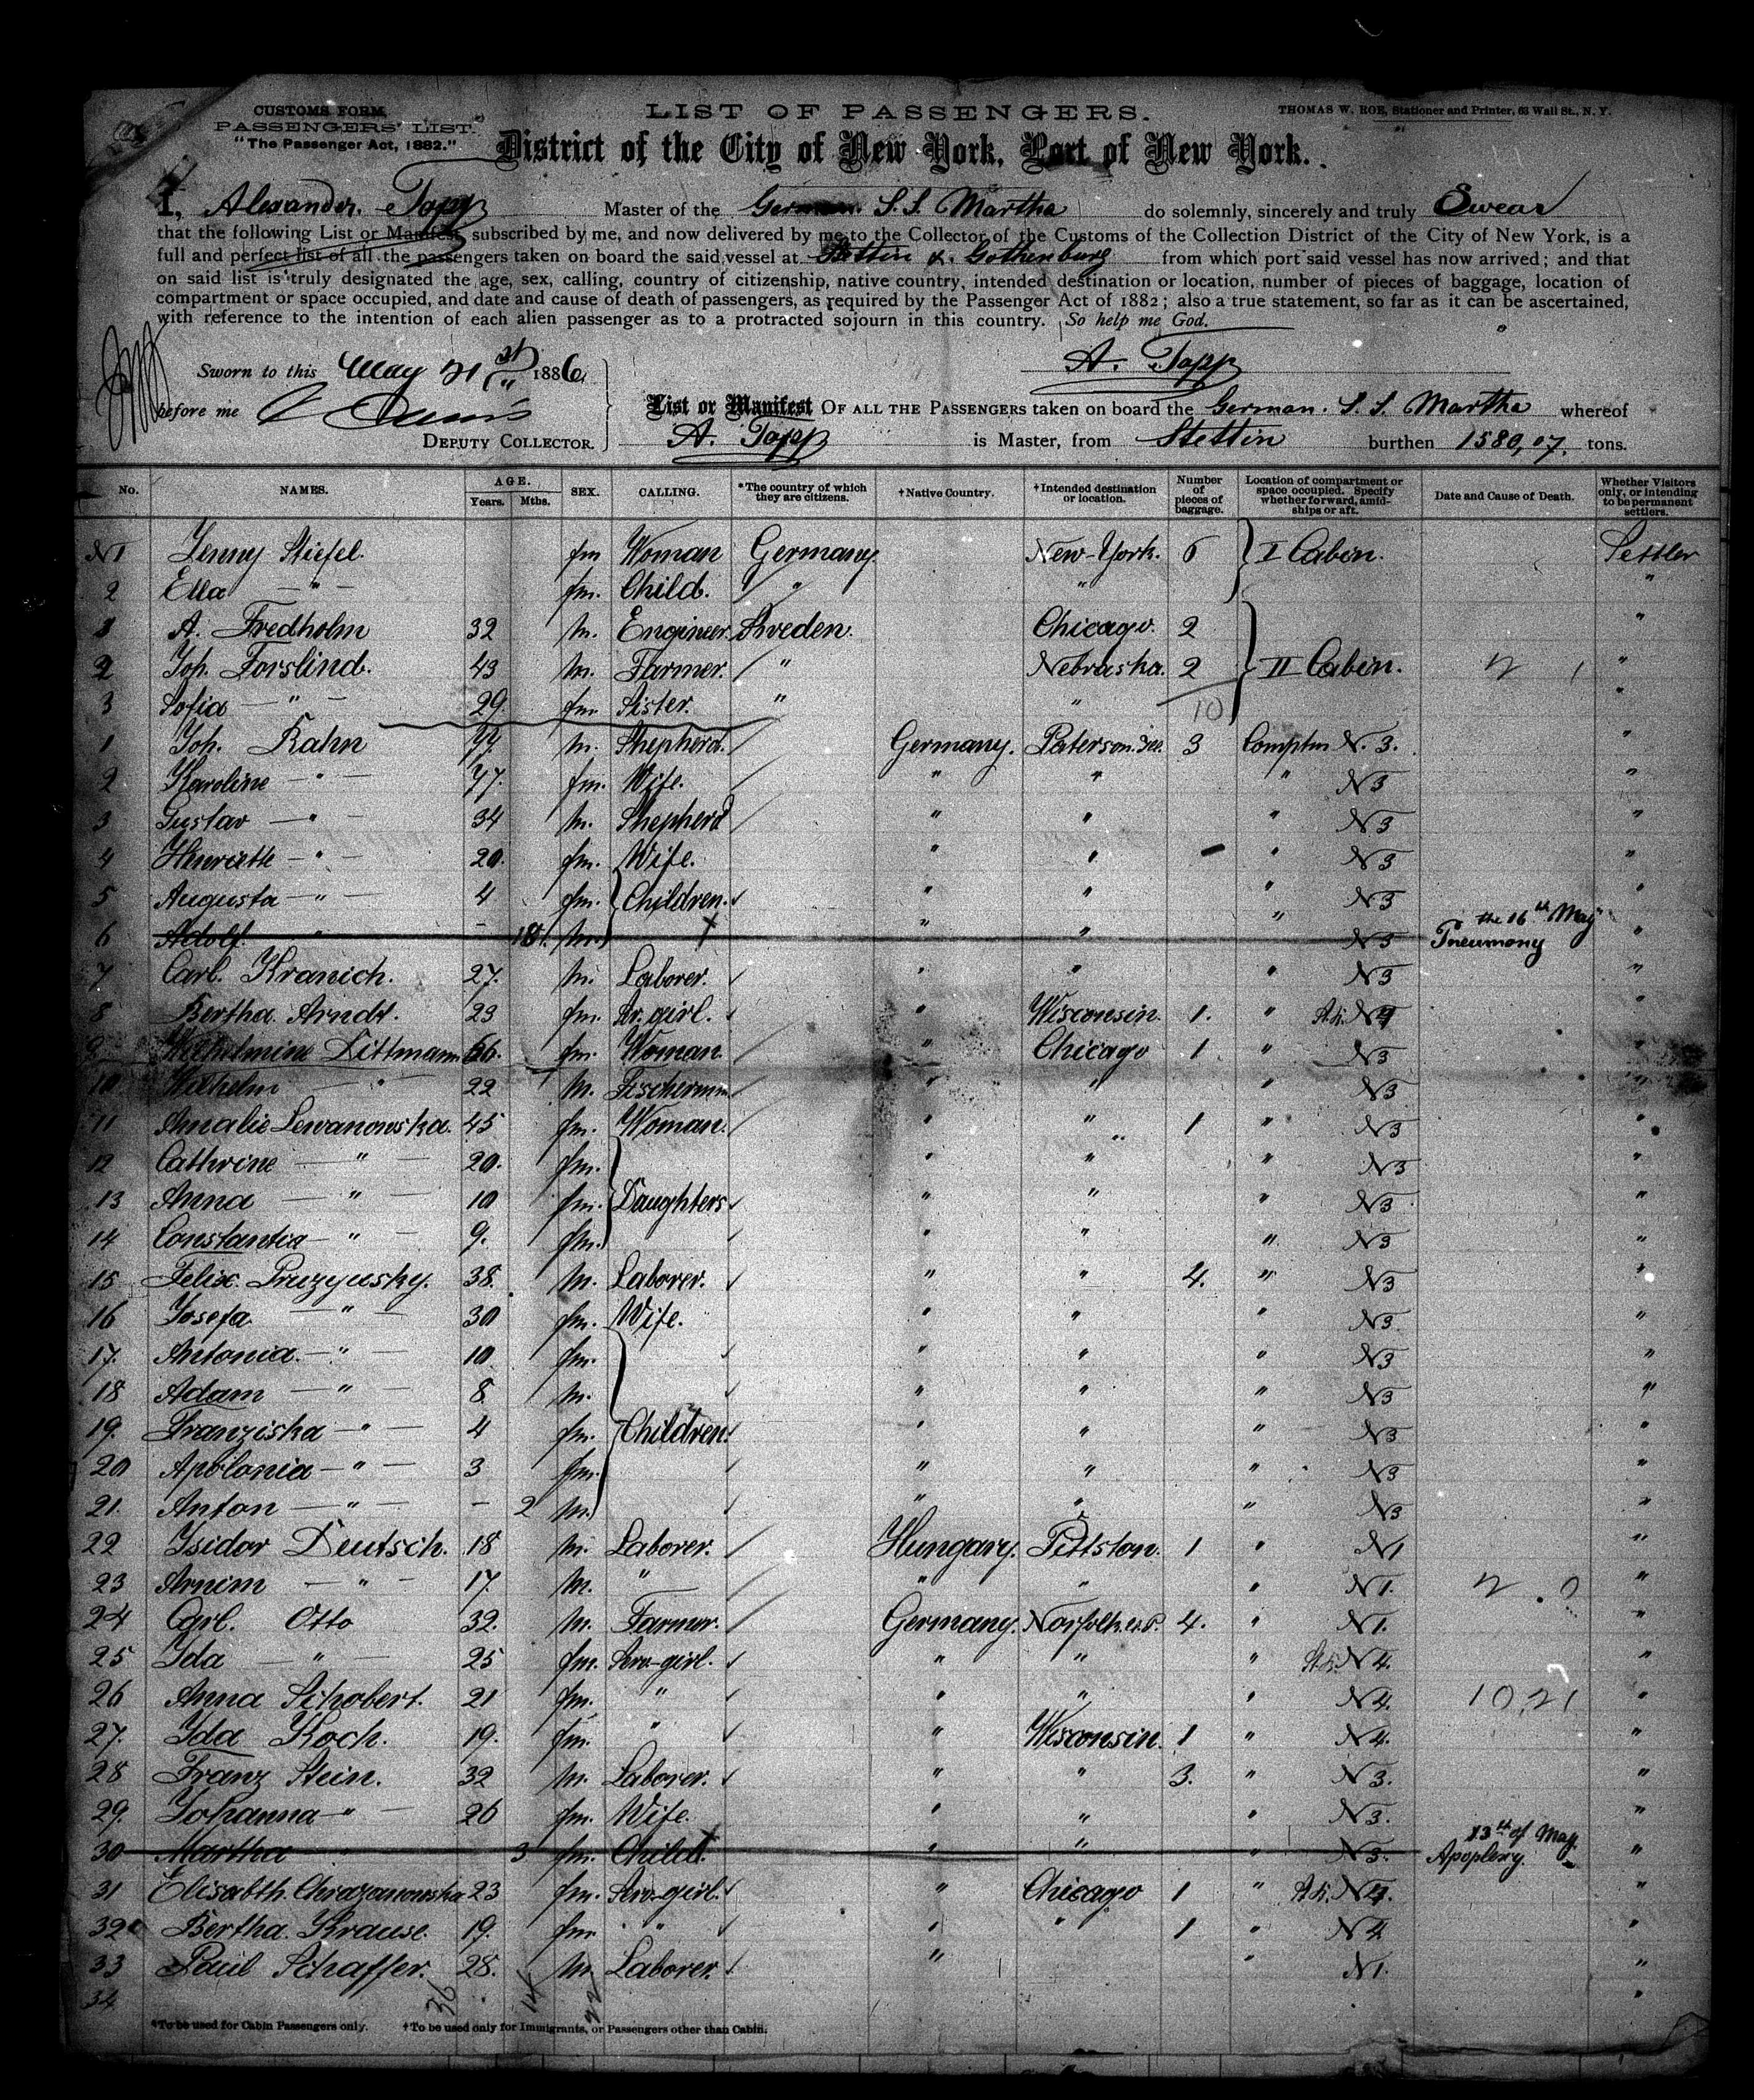 CUSTOMS FORM,
PASSENGERS' LIST.
"The Passenger Act, 1882."
LIST OF PASSENGERS.
THOMAS W. ROE, Stationer and Printer, 63 Wall St., N. Y.
District of the City of New York, Port of New York.
I, Alexander Tapp Master of the German S.S. Martha do solemnly, sincerely and truly Swear
that the following List or Manifest, subscribed by me, and now delivered by me to the Collector of the Customs of the Collection District of the City of New York, is a
full and perfect list of all the passengers taken on board the said vessel at Stettin & Gothenburg from which port said vessel has now arrived; and that
on said list is truly designated the age, sex, calling, country of citizenship, native country, intended destination or location, number of pieces of baggage, location of
compartment or space occupied, and date and cause of death of passengers, as required by the Passenger Act of 1882; also a true statement, so far as it can be ascertained,
with reference to the intention of each alien passenger as to a protracted sojourn in this country. So help me God.
Sworn to this May 21st 1886
A. Tapp
before me
DEPUTY COLLECTOR.
List or Manifest OF ALL THE PASSENGERS taken on board the German S.S. Martha whereof
A. Tapp is Master, from Stettin burthen 1580,07. tons.
No. NAMES. AGE. Years. Mths. SEX. CALLING. *The country of which they are citizens. †Native Country. †Intended destination or location. Number of pieces of baggage. Location of compartment or space occupied. Specify whether forward, amidships or aft. Date and Cause of Death. Whether Visitors only, or intending to be permanent settlers.
N1 Jenny Stiefel. fm Woman Germany. New-York. 6 I Cabin. Settler
2 Ella — " — fm. Child. " " "
1 A. Fredholm 32 m. Engineer. Sweden. Chicago. 2 "
2 Joh. Forslind. 43 m. Farmer. " Nebraska. 2 II Cabin. "
3 Sofia — " — 29. fm. Sister. " " 10 "
1 Joh. Rahn 77. m. Shepherd. Germany. Paterson. 3 Comptm N. 3. "
2 Karoline — " — 77. fm. Wife. " " " N3 "
3 Gustav — " — 34 m. Shepherd " " " N3 "
4 Henriette — " — 20. fm. Wife. " " " N3 "
5 Augusta — " — 4 fm. Children. " " " N3 "
6 Adolf. " - 18. m. " " " N3 the 16th May Pneumony "
7 Carl. Kranich. 27. m. Laborer. " " " N3 "
8 Bertha Arndt. 23 fm. girl. " Wisconsin. 1. " N4 "
9 Wilhelmine Dittmann 56. fm. Woman. " Chicago 1 " N3 "
10 Wilhelm — " — 22 m. Fischerm. " " " N3 "
11 Amalie Lewanowska. 45 fm. Woman. " " 1 " N3 "
12 Cathrine — " — 20. fm. " " N3 "
13 Anna — " — 10 fm. Daughters " " " N3 "
14 Constantia — " — 9. fm. " " " N3 "
15 Felix Pruzyusky. 38. m. Laborer. " " 4. " N3 "
16 Josefa — " — 30 fm. Wife. " " " N3 "
17. Antonia. — " — 10 fm. " " " N3 "
18 Adam — " — 8 m. " " " N3 "
19. Franziska — " — 4 fm. Children. " " " N3 "
20 Apolonia — " — 3 fm. " " " N3 "
21. Anton — " — - 2 m. " " " N3 "
22 Isidor Deutsch. 18 m. Laborer. Hungary. Pittston. 1 " N1 "
23 Arnim — " — 17. m. " " " " N1. "
24 Carl. Otto 32. m. Farmer. Germany. Norfolk. 4. " N1. "
25 Ida — " — 25 fm. Serv-girl. " " " N4. "
26 Anna Schobert. 21 fm. " " " " N4. "
27. Ida Koch. 19. fm. " " Wisconsin. 1 " N4. "
28 Franz Stein. 32 m. Laborer. " " 3. " N3. "
29. Johanna — " — 26 fm. Wife. " " " N3. "
30 Martha " 3 fm. Child. " " " N3. 13th of May. Apoplexy. "
31 Elisabth. Chrazanowska 23 fm. Serv-girl. " Chicago 1 " N4. "
32 Bertha Krause. 19. fm. " " " 1 " N4 "
33 Paul Schaffer. 28. m. Laborer. " " N1. "
34 "
36 14 22
*To be used for Cabin Passengers only. †To be used only for Immigrants, or Passengers other than Cabin.